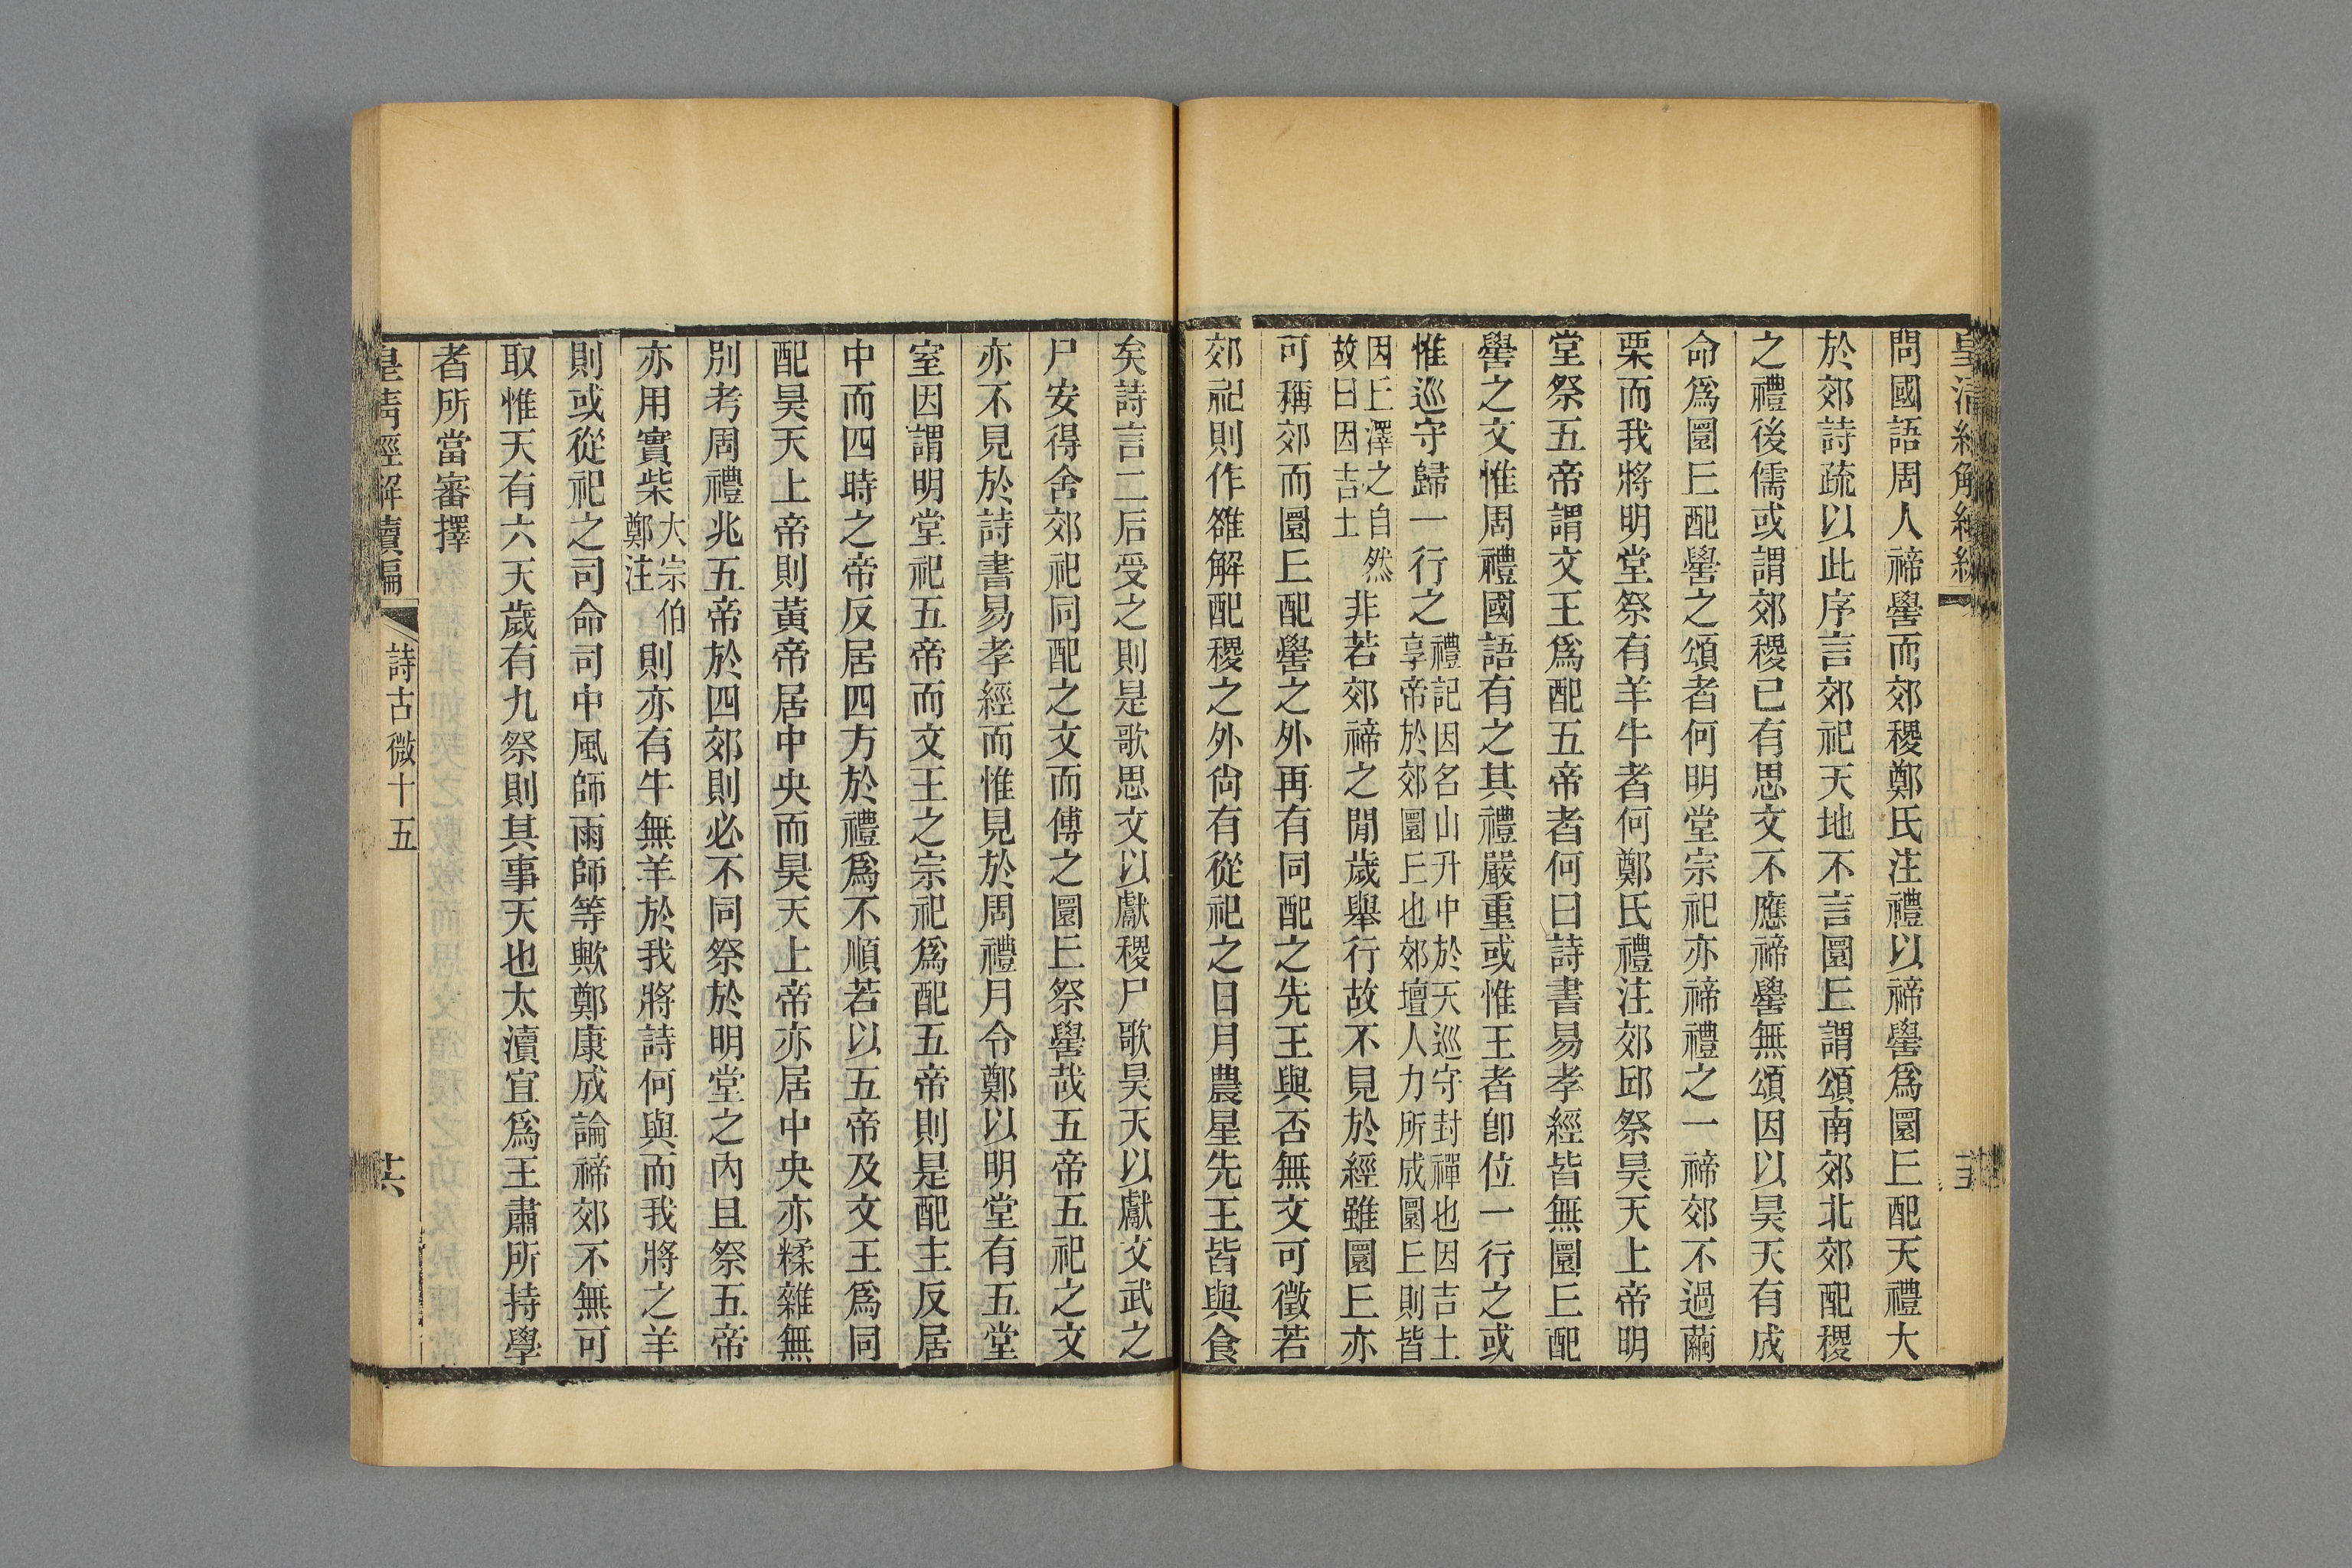 皇清經解續編
問國語周人禘嚳而郊稷鄭氏注禮以禘嚳爲圜丘配天禮大
於郊詩疏以此序言郊祀天地不言圜丘謂頌南郊北郊配稷
之禮後儒或謂郊稷已有思文不應禘嚳無頌因以昊天有成
命爲圜丘配嚳之頌者何明堂宗祀亦禘禮之一禘郊不過繭
栗而我將明堂祭有羊牛者何鄭氏禮注郊邱祭昊天上帝明
堂祭五帝謂文王爲配五帝者何曰詩書易孝經皆無圜丘配
嚳之文惟周禮國語有之其禮嚴重或惟王者卽位一行之或
惟巡守歸一行之禮記因名山升中於天巡守封禪也因吉土
享帝於郊圜丘也郊壇人力所成圜丘則皆
因丘澤之自然
故曰因吉土
非若郊禘之閒歲舉行故不見於經雖圜丘亦
可稱郊而圜丘配嚳之外再有同配之先王與否無文可徵若
郊祀則作雒解配稷之外尙有從祀之日月農星先王皆與食
矣詩言二后受之則是歌思文以獻稷尸歌昊天以獻文武之
尸安得舍郊祀同配之文而傅之圜丘祭嚳哉五帝五祀之文
亦不見於詩書易孝經而惟見於周禮月令鄭以明堂有五堂
室因謂明堂祀五帝而文王之宗祀爲配五帝則是配主反居
中而四時之帝反居四方於禮爲不順若以五帝及文王爲同
配昊天上帝則黃帝居中央而昊天上帝亦居中央亦糅雜無
別考周禮兆五帝於四郊則必不同祭於明堂之內且祭五帝
亦用實柴大宗伯
鄭注
則亦有牛無羊於我將詩何與而我將之羊
則或從祀之司命司中風師雨師等歟鄭康成論禘郊不無可
取惟天有六天歲有九祭則其事天也太瀆宜爲王肅所持學
者所當審擇
皇清經解續編
詩古微十五
十六